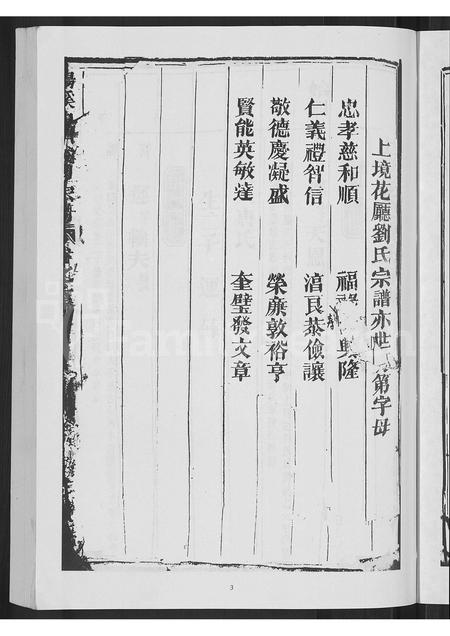 上境花廳劉氏宗譜亦世 第字母
忠孝慈和順 福 興隆
仁義禮智信 溫良恭儉讓
敬德慶凝盛 榮廉敦裕亨
賢能英敏達 奎璧發文章
3